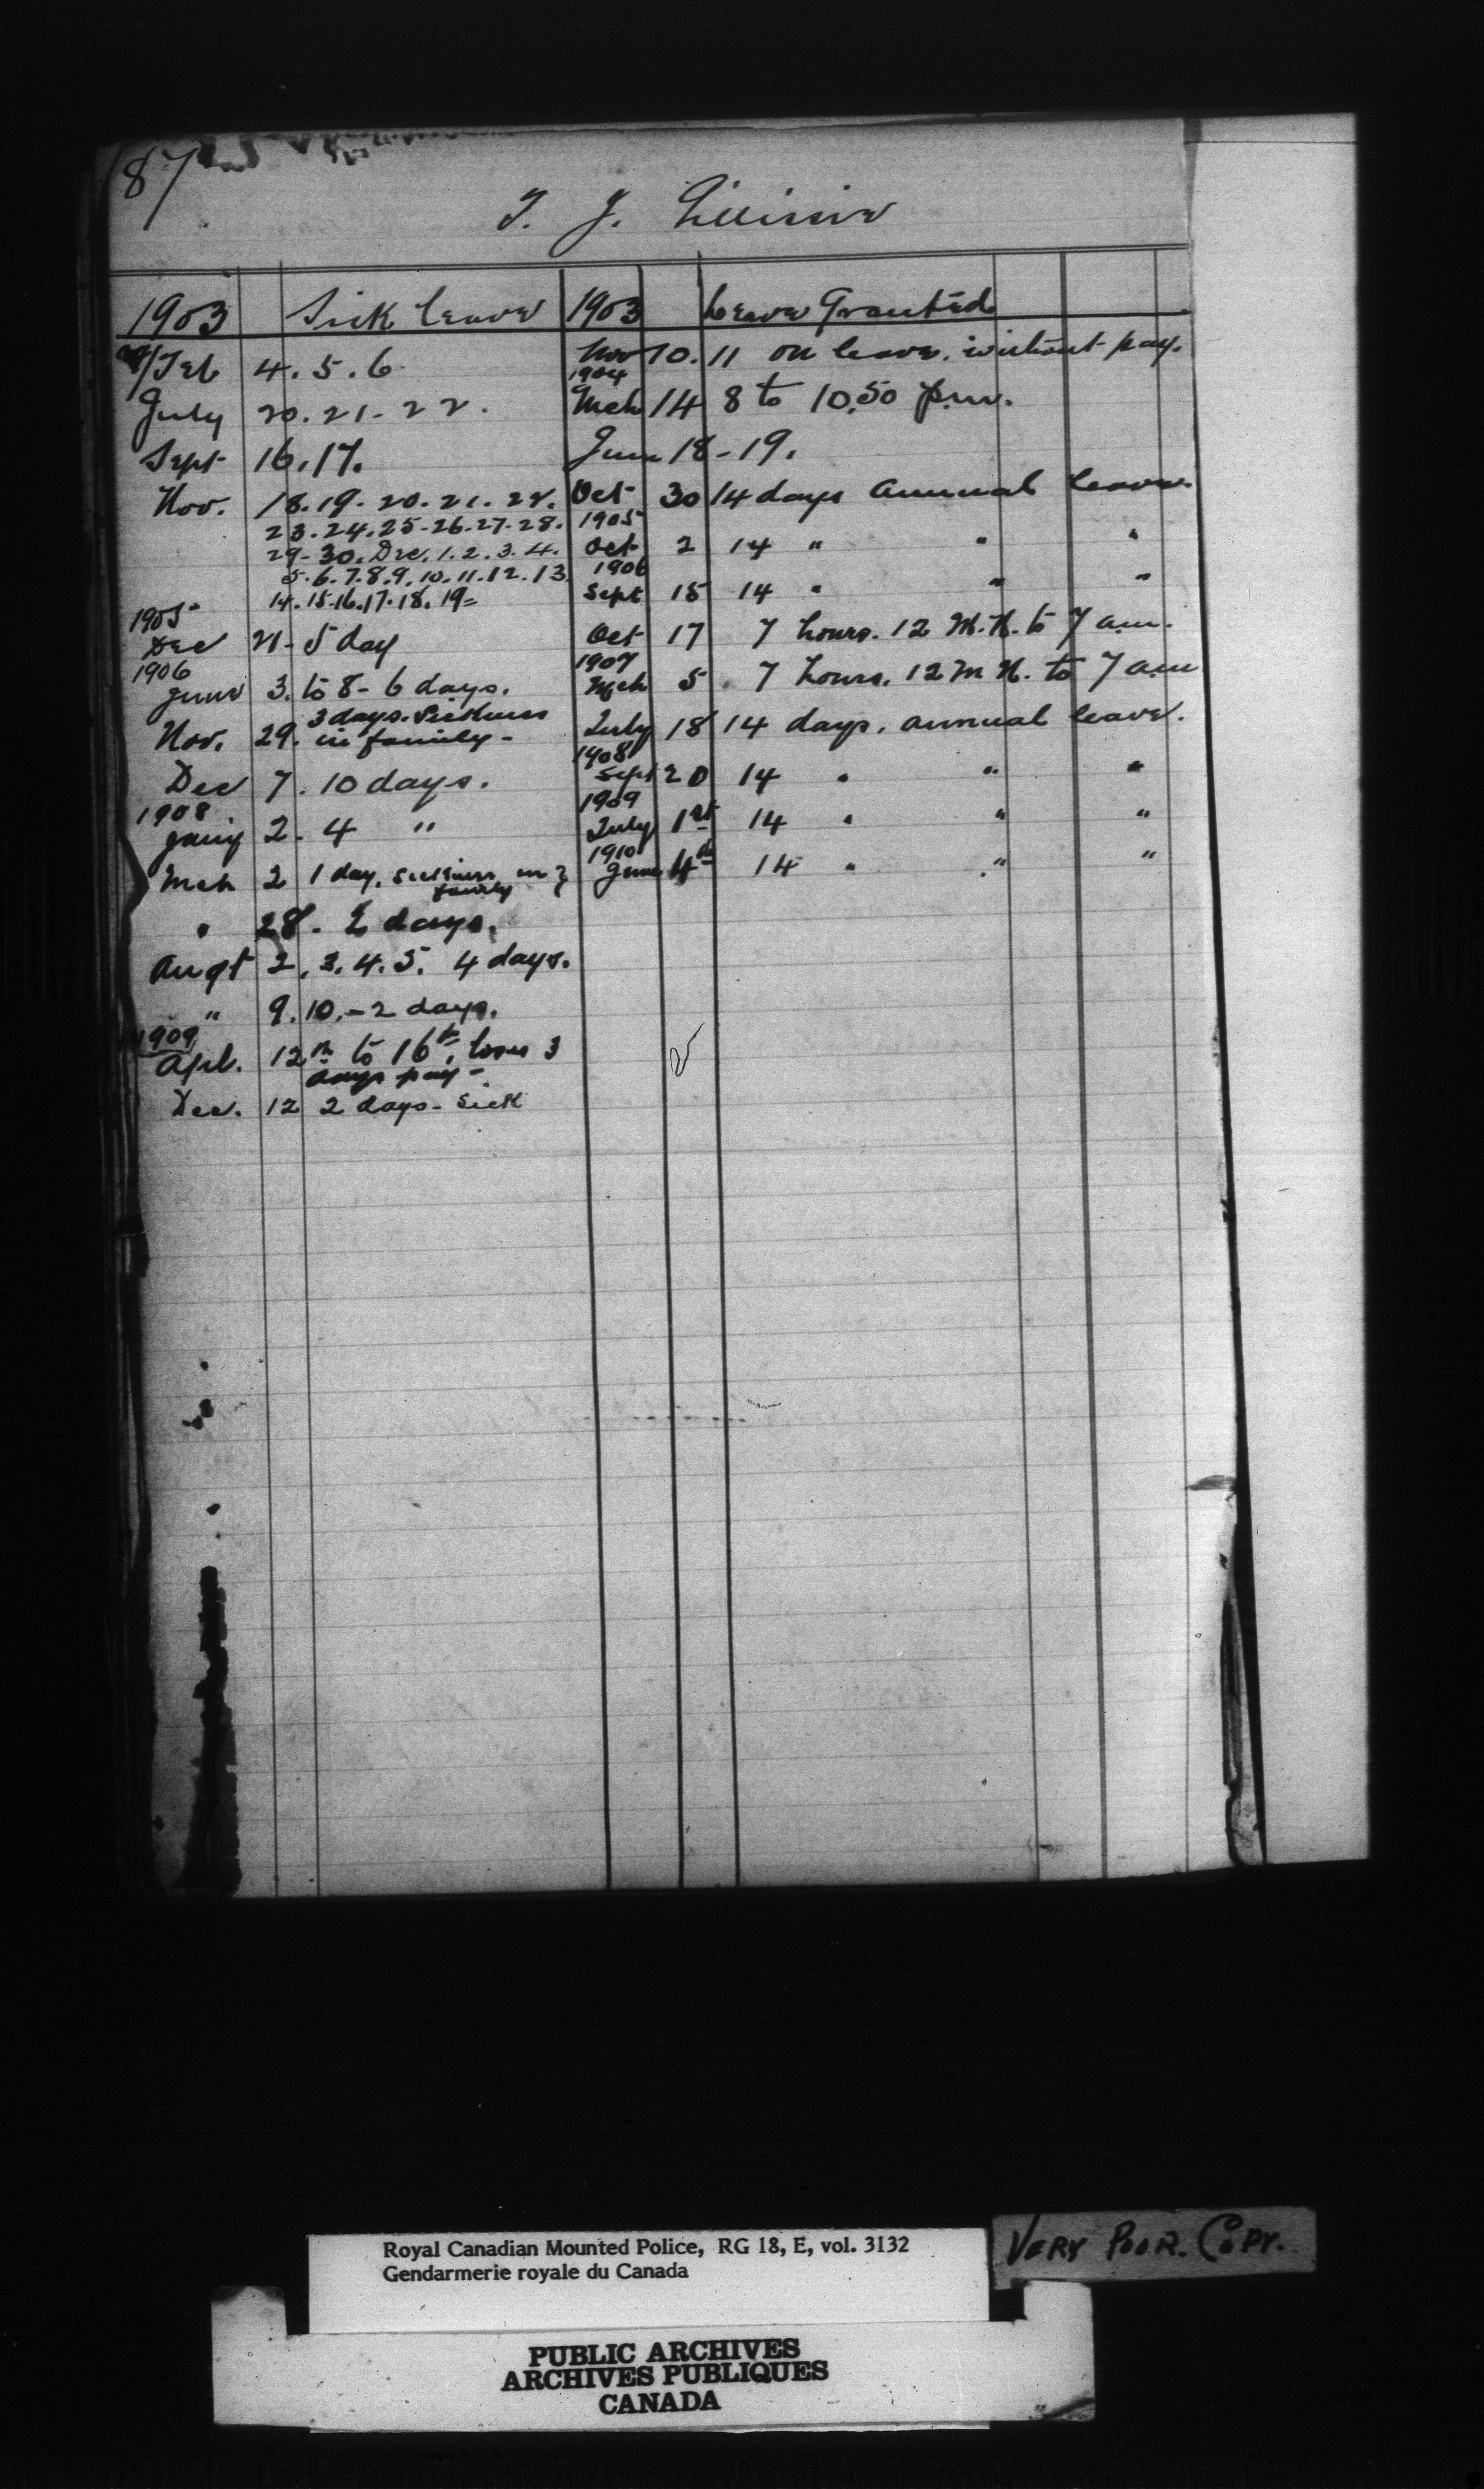 87
T. J.
1903 Sick Leave 1903 Leave Granted
Feb 4. 5. 6. Nov 10. 11 on leave. without pay.
1904
July 20. 21 - 22. Mch 14 8 to 10.50 p.m.
Sept 16. 17. June 18 - 19.
Nov. 18. 19. 20. 21. 22. Oct 30 14 days annual leave.
23. 24. 25 - 26. 27 - 28. 1905
29 - 30. Dec. 1. 2. 3. 4. Oct 2 14 " " "
5. 6. 7. 8. 9. 10. 11. 12. 13. 1906
14. 15. 16. 17. 18. 19 = Sept 15 14 " " "
1905
Dec 21 - 5 day Oct 17 7 hours. 12 M.N. to 7 a.m.
1906 1907
June 3. to 8 - 6 days. Mch 5. 7 hours. 12 M N. to 7 am
3 days. Sickness
Nov. 29. in family - July 18 14 days. annual leave.
1908
Dec 7. 10 days. Sept 20 14 " " "
1908 1909
Jany 2. 4 " July 1st 14 " " "
1910
Mch 2 1 day. sickness in June 4th 14 " " "
family
" 28. 2 days.
Augt 2. 3. 4. 5. 4 days.
" 9. 10. - 2 days.
1909
Apl. 12th to 16th. loses 3
days pay -
Dec. 12 2 days - sick
Royal Canadian Mounted Police, RG 18, E, vol. 3132
Gendarmerie royale du Canada
VERY POOR. COPY.
PUBLIC ARCHIVES
ARCHIVES PUBLIQUES
CANADA